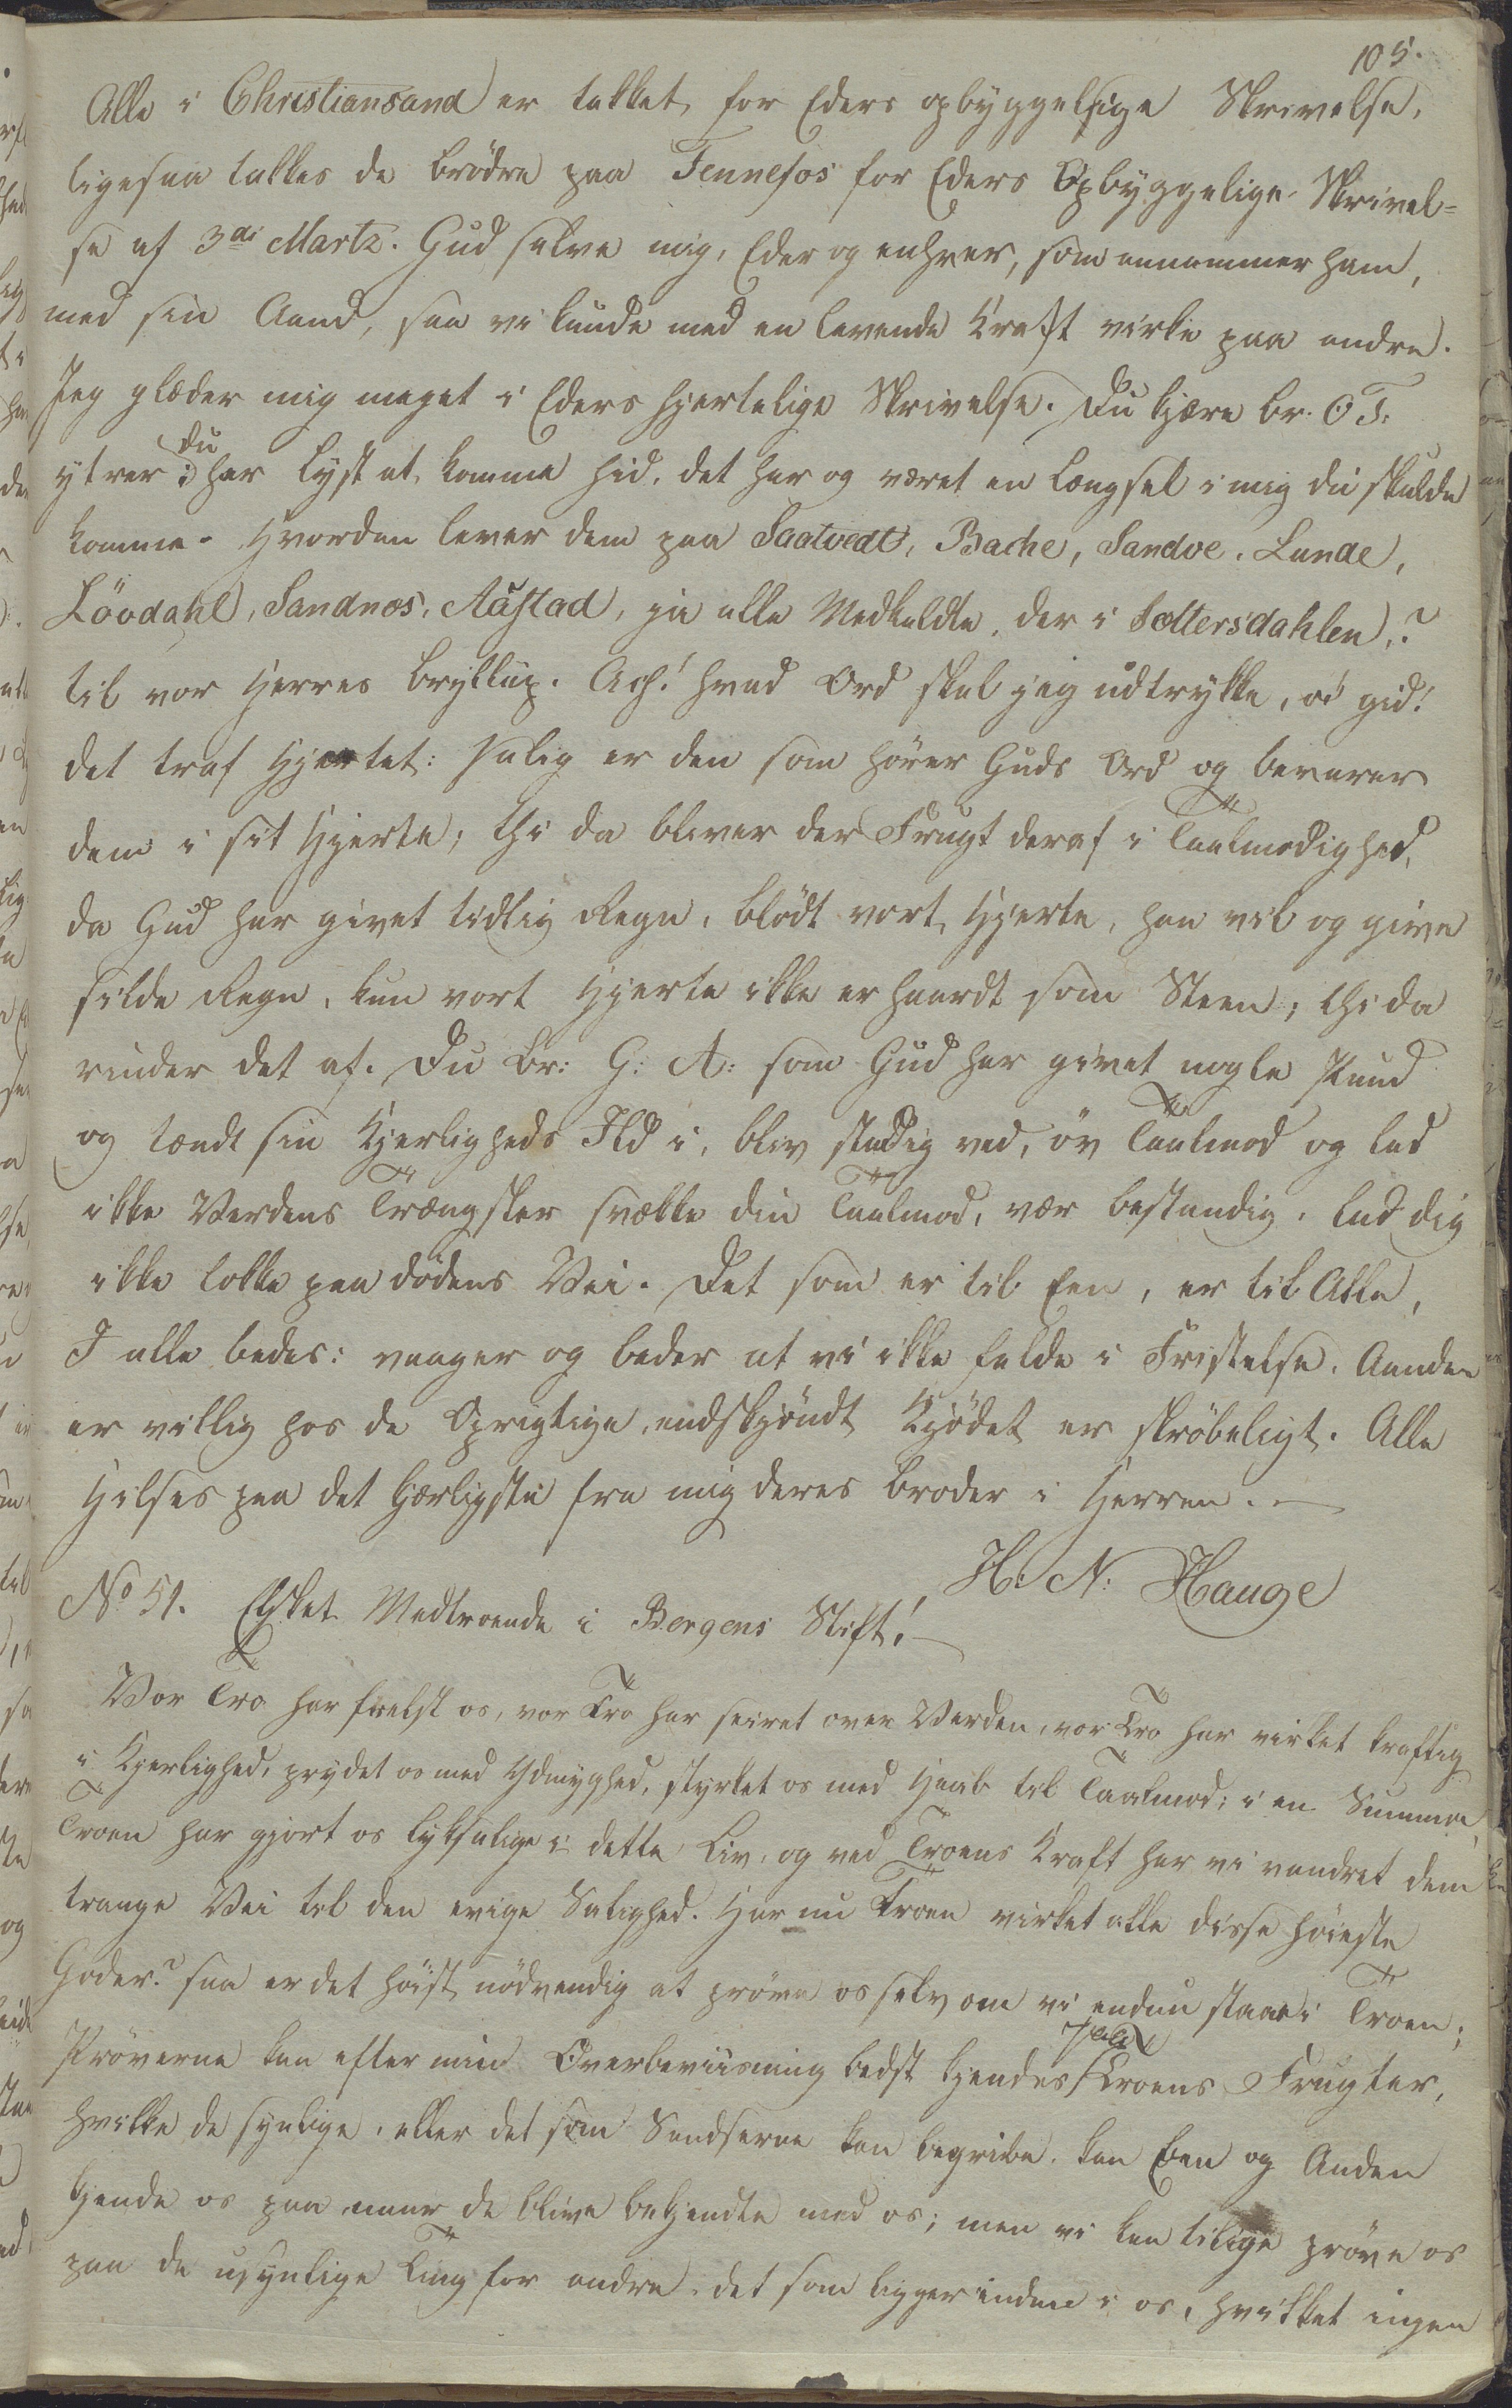 105.
Alle i Christiansand er takket for Eders opbyggelsige Skrivelse,
ligesaa takkes de Brödre paa Fennefos for Eders Opbyggelige Skrivel-
se af 3di Martz. Gud salve mig, Eder og enhver, som annammer ham,
med sin Aand, saa vi kunde med en levende Kraft virke paa andre.
Jeg glæder mig meget i Eders hjertelige Skrivelse. Du kjære Br. O T.
ytrer: du har Lyst at komme hid, det har og været en Længsel i mig du skulde
komme. Hvordan lever dem paa Saatvedt, Bache, Sandve, Lunde,
Lövdahl, Sandnæs, Aastad, ja alle Medkaldte, der i Sættersdahlen,?
til vor Herres Bryllup. Ach! hvad Ord skal jeg udtrykke, o! gid!
det traf Hjertet: Salig er den som hörer Guds Ord og bevarer
dem i sit Hjerte; thi da bliver der Frugt deraf i Taalmodighed,
da Gud har givet tidlig Regn, blödt vort Hjerte, han vil og give
silde Regn, kun vort Hjerte ikke er haardt som Steen; thi da
rinder det af. Du Br: G: A: som Gud har givet nogle Pund
og tændt sin Kjerligheds Ild i, bliv stadig ved, öv Taalmod og lad
ikke Verdens Trængsler svække din Taalmod, vær bestandig, lad dig
ikke lokke paa dödens Vei. Det som er til Een, er til Alle,
I alle bedes: vaager og beder at vi ikke falde i Fristelse. Aanden
er villig hos de Oprigtige, endskjöndt Kjödet er skröbeligt. Alle
Hilses paa det kjærligste fra mig deres Broder i Herren.
H: N: Hauge
No 51. Elsket Medtroende i Bergens Stift!
Vor Tro har frelst os, vor Tro har seiret over Verden, vor Tro har virket kraftig
i Kjerlighed, prydet os med Ydmyghed, styrket os med Haab til Taalmod; i en Summa,
Troen har gjort os lyksalige i dette Liv, og ved Troens Kraft har vi vandret den
trange Vei til den evige Salighed. Har nu Troen virket alle disse höieste
Goder? saa er det höist nödvendig at pröve os selv om vi endnu staar i Troen;
Pröverne kan efter min Overbeviisning bedst kjendes Troens Frugter,
hvilke de synlige, eller det som Sandserne kan begribe, kan Een og Anden
kjende os paa naar de blive bekjendte med os; men vi kan tilige pröve os
paa de usynlige Ting for andre, det som ligger inden i os, hvilket ingen